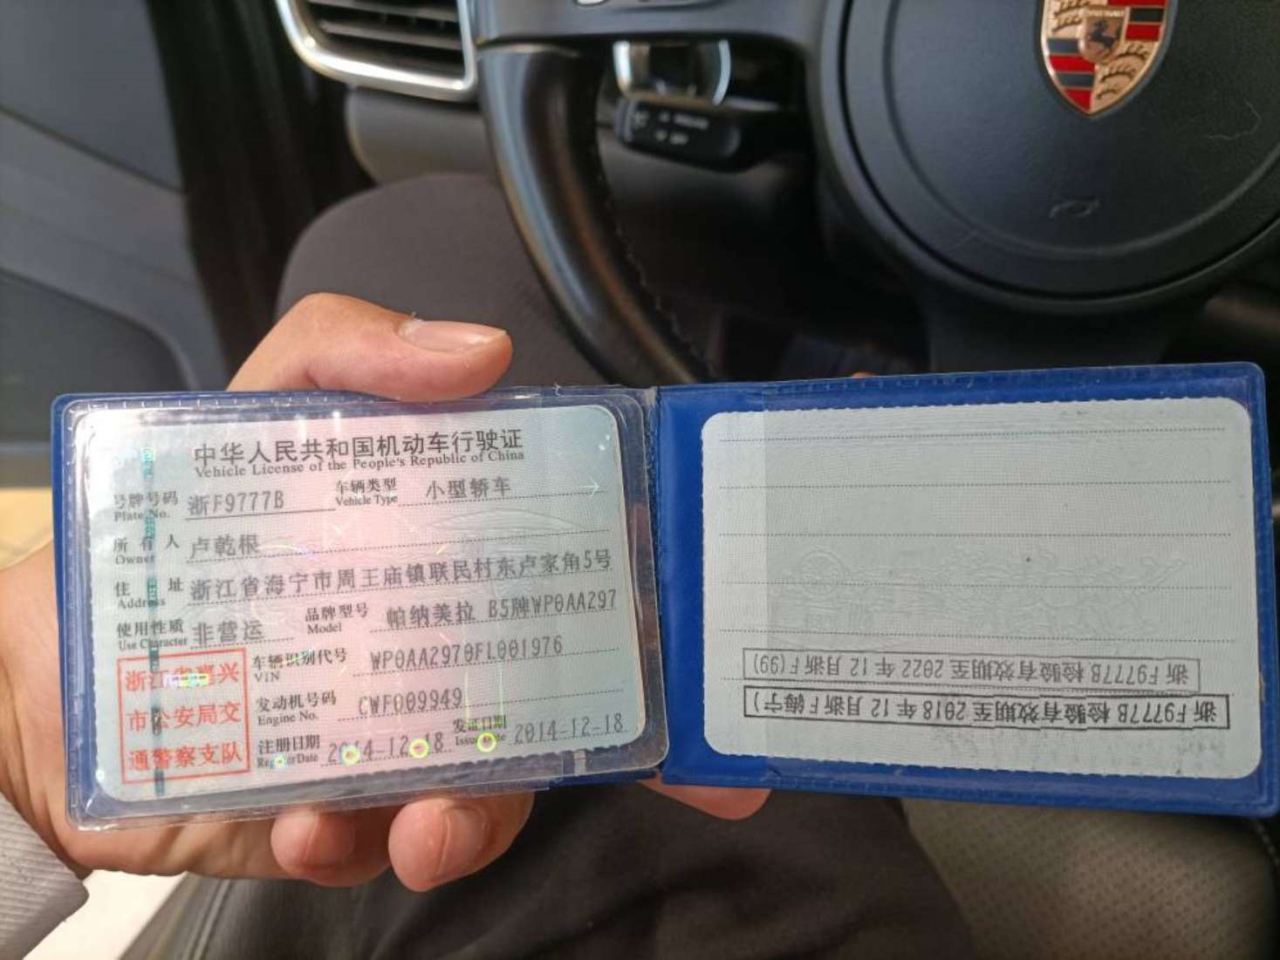 中华人民共和国机动车行驶证
Vehicle License of the People's Republic of China
号牌号码 浙F9777B 车辆类型 小型轿车
Plate No. Vehicle Type
所有人 卢乾根
Owner
住址 浙江省海宁市周王庙镇联民村东卢家角5号
Address
使用性质 非营运 品牌型号 帕纳美拉 B5牌WP0AA297
Use Character Model
浙江省嘉兴
市公安局交
通警察支队
车辆识别代号 WP0AA2970FL001976
VIN
发动机号码 CWF009949
Engine No.
注册日期 2014-12-18 发证日期 2014-12-18
Register Date Issue Date
浙F9777B 检验有效期至2018年12月浙F(海宁)
浙F9777B 检验有效期至2022年12月浙F(99)